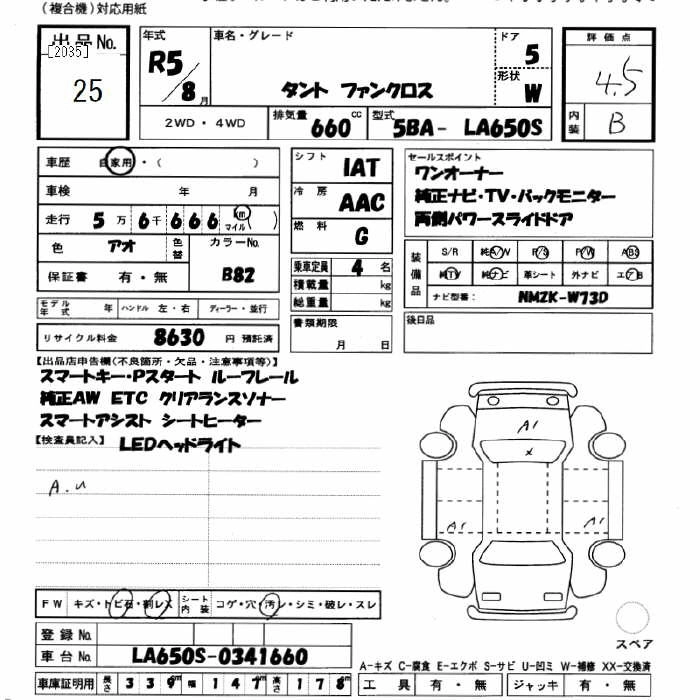 (複合機)対応用紙
出品No.
[2035]
25
年式
R5/8月
車名・グレード
タント ファンクロス
ドア
5
形状
W
評価点
4.5
内装
B
2WD・4WD
排気量
660 cc
型式
5BA- LA650S
車歴 自家用・( )
車検 年 月
走行 5万6千666 km マイル( )
色 アオ 色替 カラーNo. B82
保証書 有・無
モデル年式 年 ハンドル 左・右 ディーラー・並行
リサイクル料金 8630 円 預託済
シフト IAT
冷房 AAC
燃料 G
乗車定員 4 名
積載量 kg
総重量 kg
書類期限
月 日
セールスポイント
ワンオーナー
純正ナビ・TV・バックモニター
両側パワースライドドア
装備品
S/R 純A/W P/S P/W ABS
純TV 純ナビ 革シート 外ナビ エアB
ナビ型番: NMZK-W73D
後日品
【出品店申告欄(不良箇所・欠品・注意事項等)】
スマートキー・Pスタート ルーフレール
純正AW ETC クリアランスソナー
スマートアシスト シートヒーター
【検査員記入】 LEDヘッドライト
A.u
A1
x
A1
A1
FW キズ・トビ石・割レ・X シート内装 コゲ・穴・汚レ・シミ・破レ・スレ
スペア
登録No.
車台No. LA650S-0341660
A-キズ C-腐食 E-エクボ S-サビ U-凹ミ W-補修 XX-交換済
車庫証明用 長さ 339m 幅 147m 高さ 178m
工具 有・無 ジャッキ 有・無